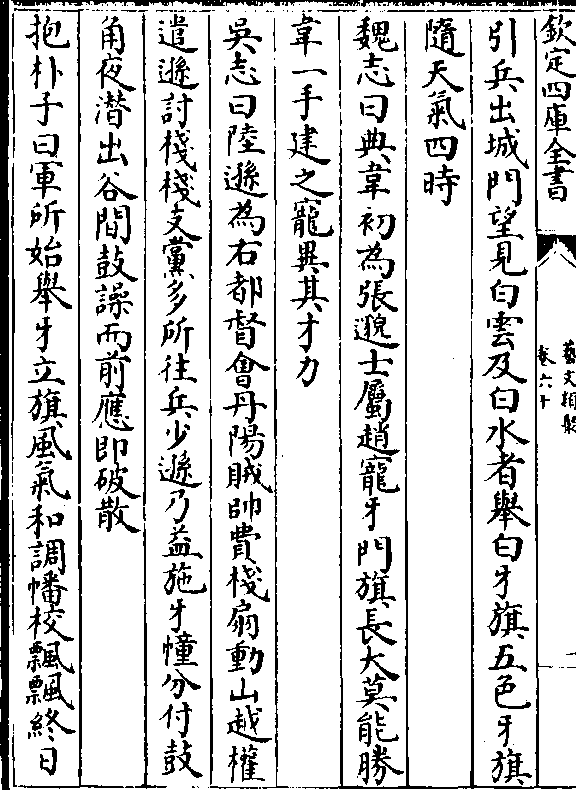 欽定四庫全書
藝文類聚
卷六十
引兵出城門望見白雲及白水者舉白牙旗五色牙旗
隨天氣四時
魏志曰典韋初為張邈士屬趙寵牙門旗長大莫能勝
韋一手建之寵異其才力
吳志曰陸遜為右都督會丹陽賊帥費棧扇動山越權
遣遜討棧棧支黨多所往兵少遜乃益施牙幢分付鼓
角夜潛出谷間鼓譟而前應即破散
抱朴子曰軍所始舉牙立旗風氣和調幡校飄飄終日